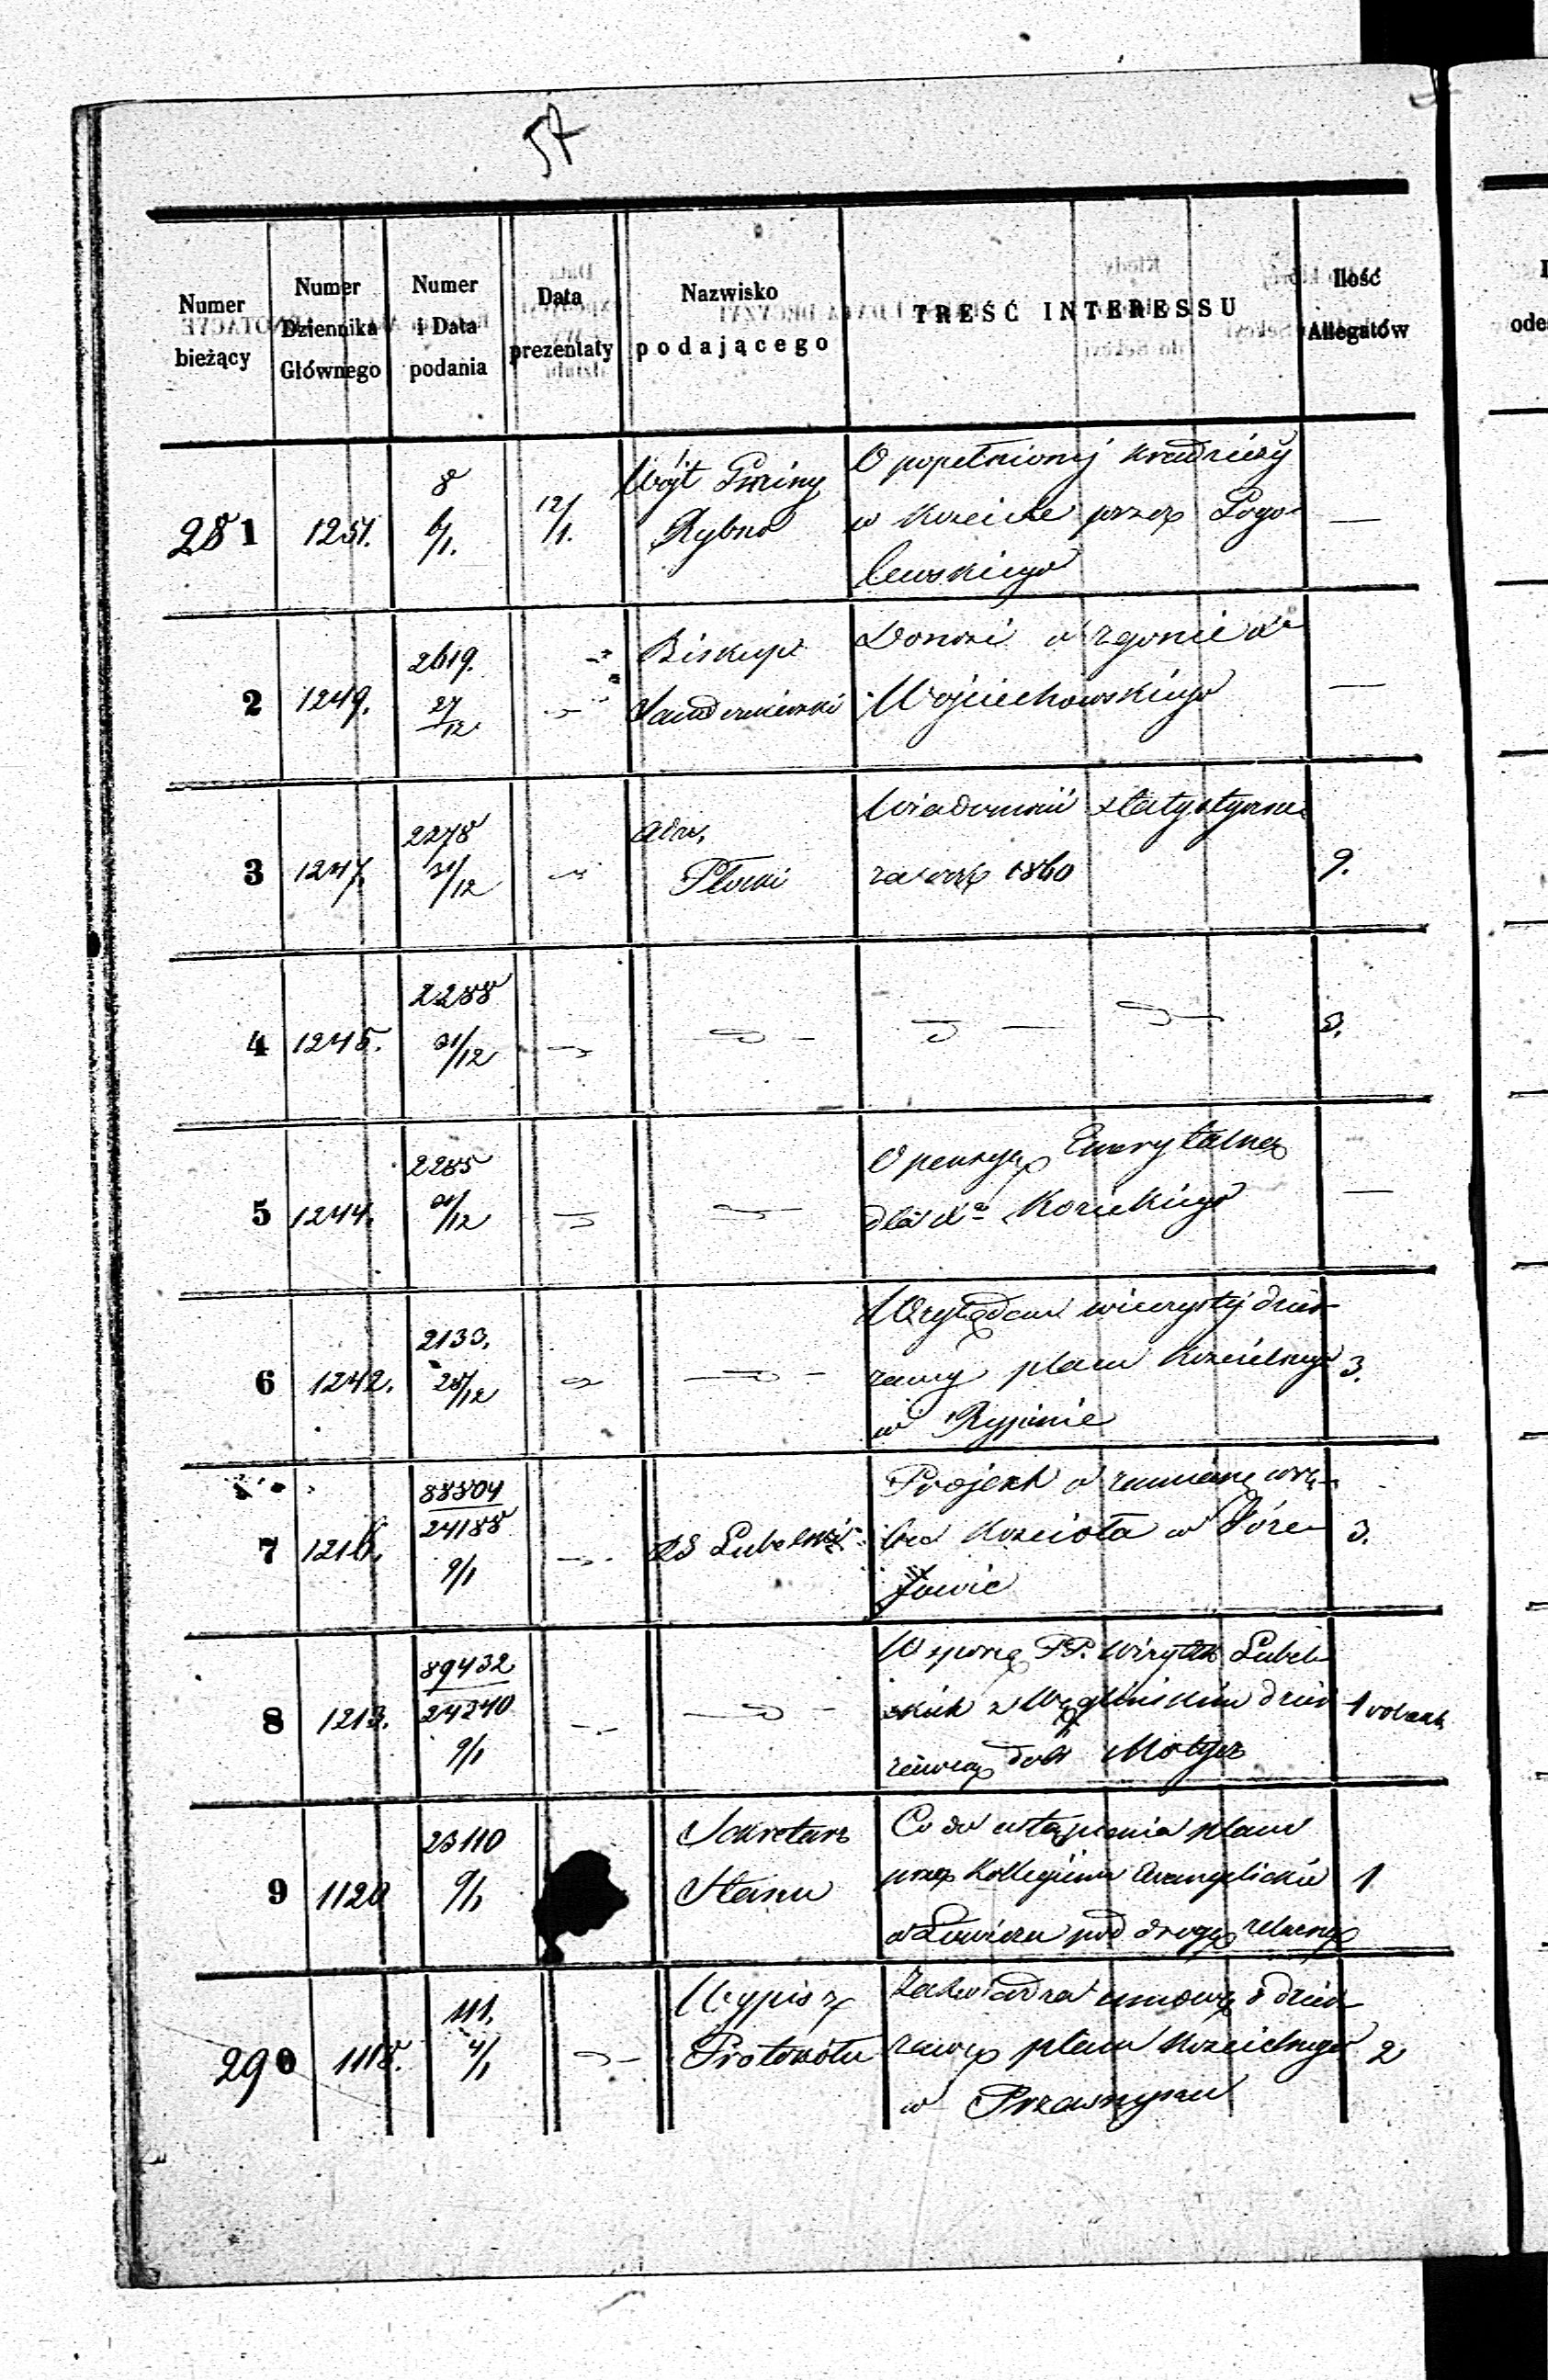 57
Numer bieżący
Numer Dziennika Głównego
Numer i Data podania
Data prezentaty
Nazwisko podającego
TREŚĆ INTERESSU
Ilość Allegatów
281 1251. 8 6/1. 12/1. Wójt Gminy Rybno
O popełnionej kradzieży
w Kościele przez Pogo-
lewskiego —
2 1249. 2619. 27/12 Biskup Sandomierski
Donosi o zgonie Xa
Wojciechowskiego —
3 1247. 2278 31/12 Adm. Płocki
Wiadomość statystyczna
za rok 1860 9.
4 1245. 2288 31/12
5 1244. 2285 31/12
O pensyą Emerytalną
dla Xa Kozickiego —
6 1242. 2133. 28/12
Względem wieczystej dzier-
żawy placu Kościelnego 3.
w Rypinie
7 1216. 88804 24188 9/1 RG Lubelski
Projekt o zamianę
Kościoła w 3.
8 1213. 89432 24240 9/1
W sporze PP. Wizytek Lubel-
skich z Węglińskim dzier-
żawcą dóbr Motycz 1 volum.
9 1120 23110 9/1 Sekretarz Stanu
Co do ustąpienia placu
przez Kollegium Ewangelickie 1
w Łowiczu pod drogę żelazną
290 1118. 111. 4/1 Wypis z Protokołu
Zatwierdza umowę o dzier-
żawę placu Kościelnego 2
w Przasnyszu